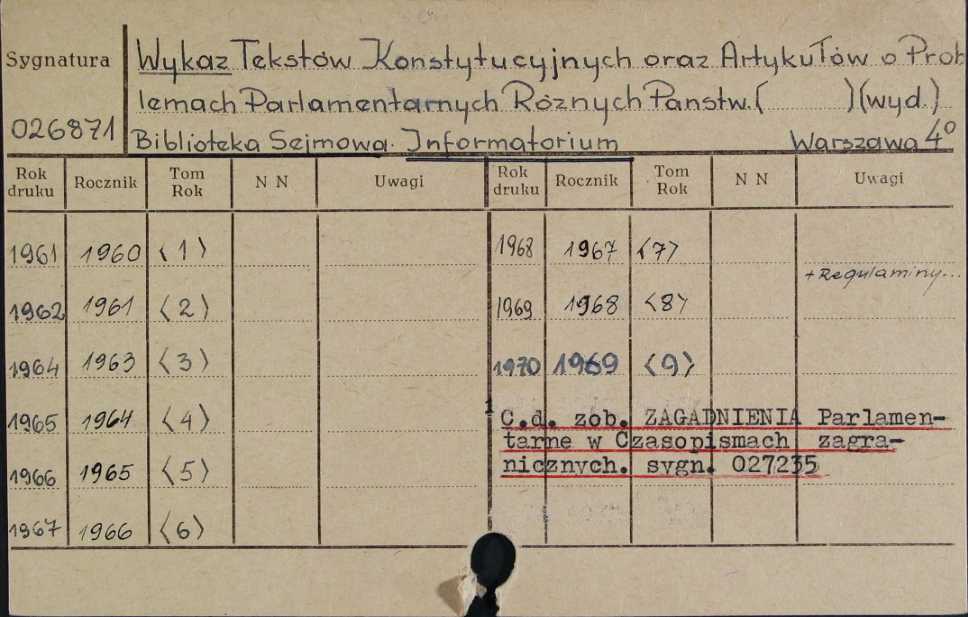 Sygnatura
026871
Wykaz Tekstów Konstytucyjnych oraz Artykułów o Prob
lemach Parlamentarnych Różnych Państw. ( ) (wyd.)
Biblioteka Sejmowa. Informatorium Warszawa 4º
Rok druku Rocznik Tom Rok N N Uwagi Rok druku Rocznik Tom Rok N N Uwagi
1961 1960 〈1〉 1968 1967 〈7〉
+ Regulaminy...
1962 1961 〈2〉 1969 1968 〈8〉
1964 1963 〈3〉 1970 1969 〈9〉
1965 1964 〈4〉
C.d. zob. ZAGADNIENIA Parlamen-
tarne w Czasopismach zagra-
nicznych. sygn. 027235
1966 1965 〈5〉
1967 1966 〈6〉